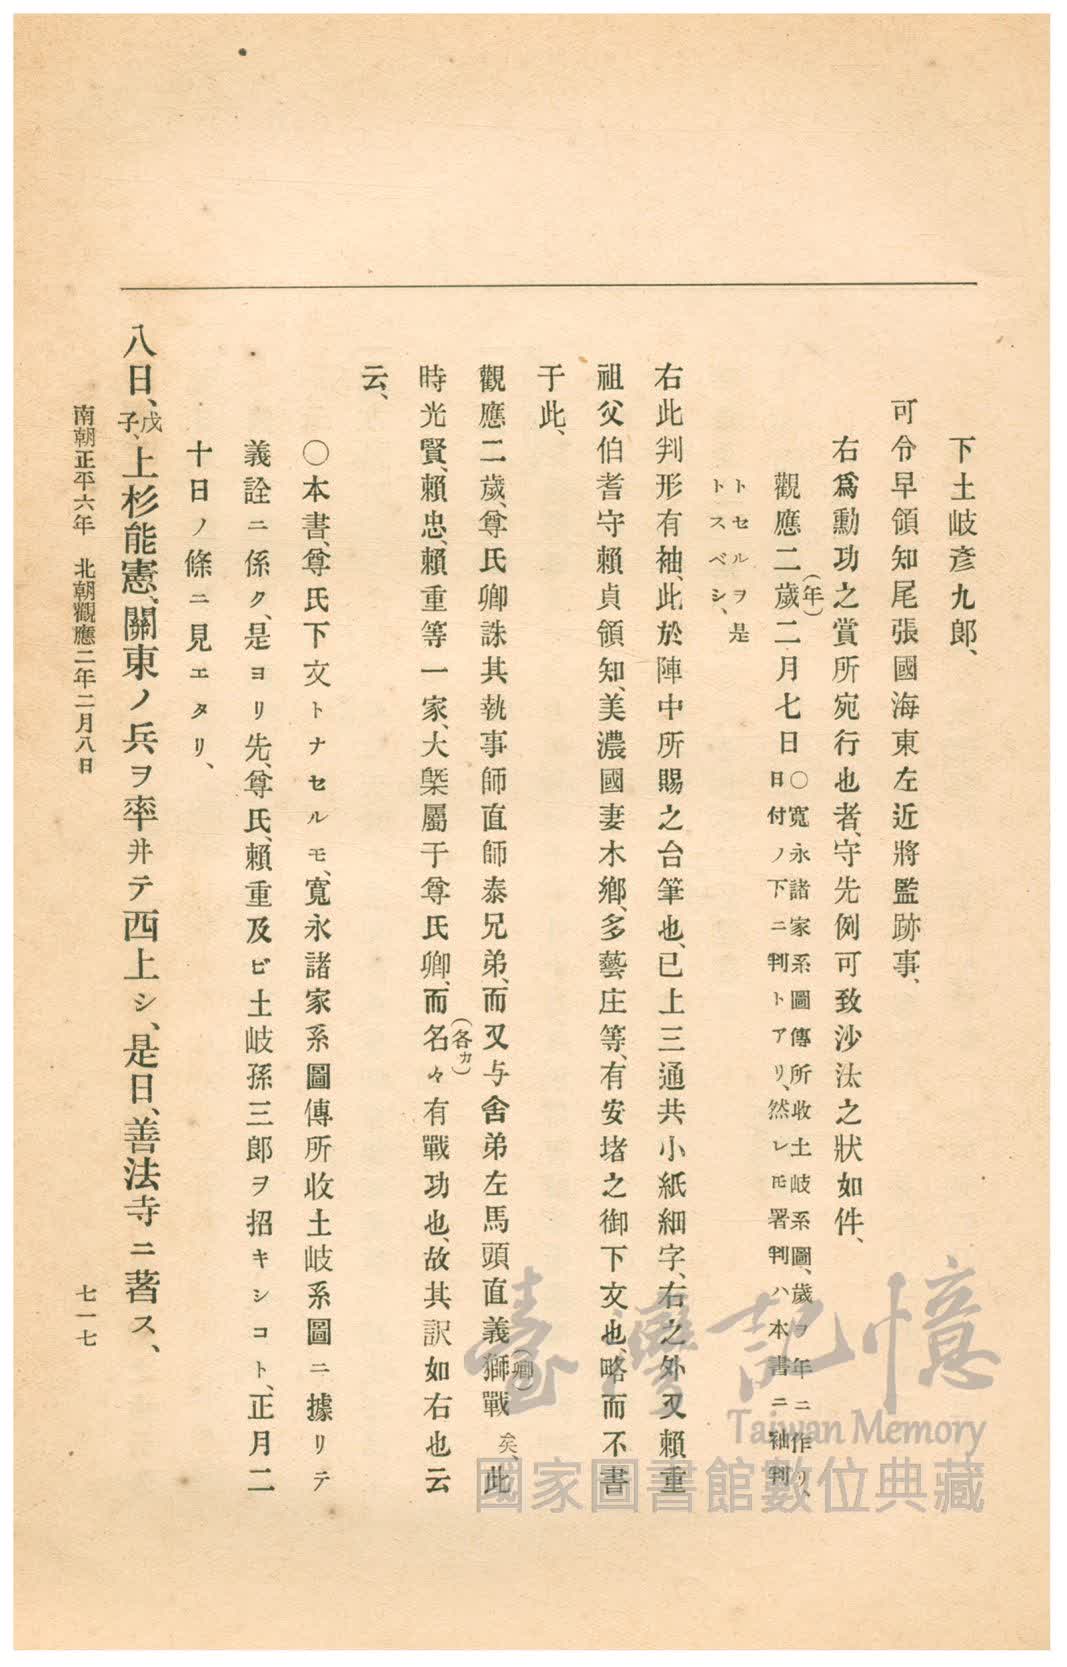 下土岐彥九郎、
可令早領知尾張國海東左近將監跡事、
右爲勳功之賞所宛行也者、守先例可致沙汰之狀如件、
觀應二歲(年)二月七日〇寬永諸家系圖傳所收土岐系圖、歲ヲ年ニ作リ、日付ノ下ニ判トアリ、然レ𪜈署判ハ本書ニ袖判
トセルヲ是トスベシ、
右此判形有袖、此於陣中所賜之台筆也、已上三通共小紙細字、右之外又賴重
祖父伯耆守賴貞領知、美濃國妻木鄕、多藝庄等、有安堵之御下文也、略而不書
于此、
觀應二歲、尊氏卿誅其執事師直師泰兄弟、而又与舍弟左馬頭直義獅(卿)戰矣、此
時光賢、賴忠、賴重等一家、大槩屬于尊氏卿、而名(各カ)々有戰功也、故其訳如右也云
云、
〇本書、尊氏下文トナセルモ、寬永諸家系圖傳所收土岐系圖ニ據リテ
義詮ニ係ク、是ヨリ先、尊氏、賴重及ビ土岐孫三郎ヲ招キシコト、正月二
十日ノ條ニ見エタリ、
八日、戊子、上杉能憲、關東ノ兵ヲ率井テ西上シ、是日、善法寺ニ著ス、
南朝正平六年 北朝觀應二年二月八日
七一七
臺灣記憶
Taiwan Memory
國家圖書館數位典藏